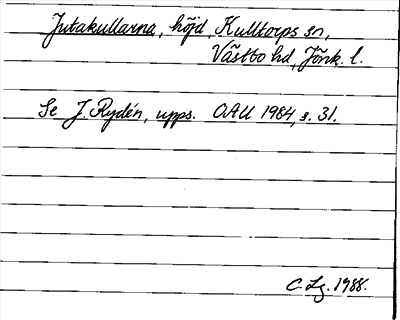 Jutakullarna, höjd, Kulltorps sn,
Västbo hd, Jönk. l.
Se J. Rydén, upps. OAU 1984, s. 31.
C. Lg. 1988.